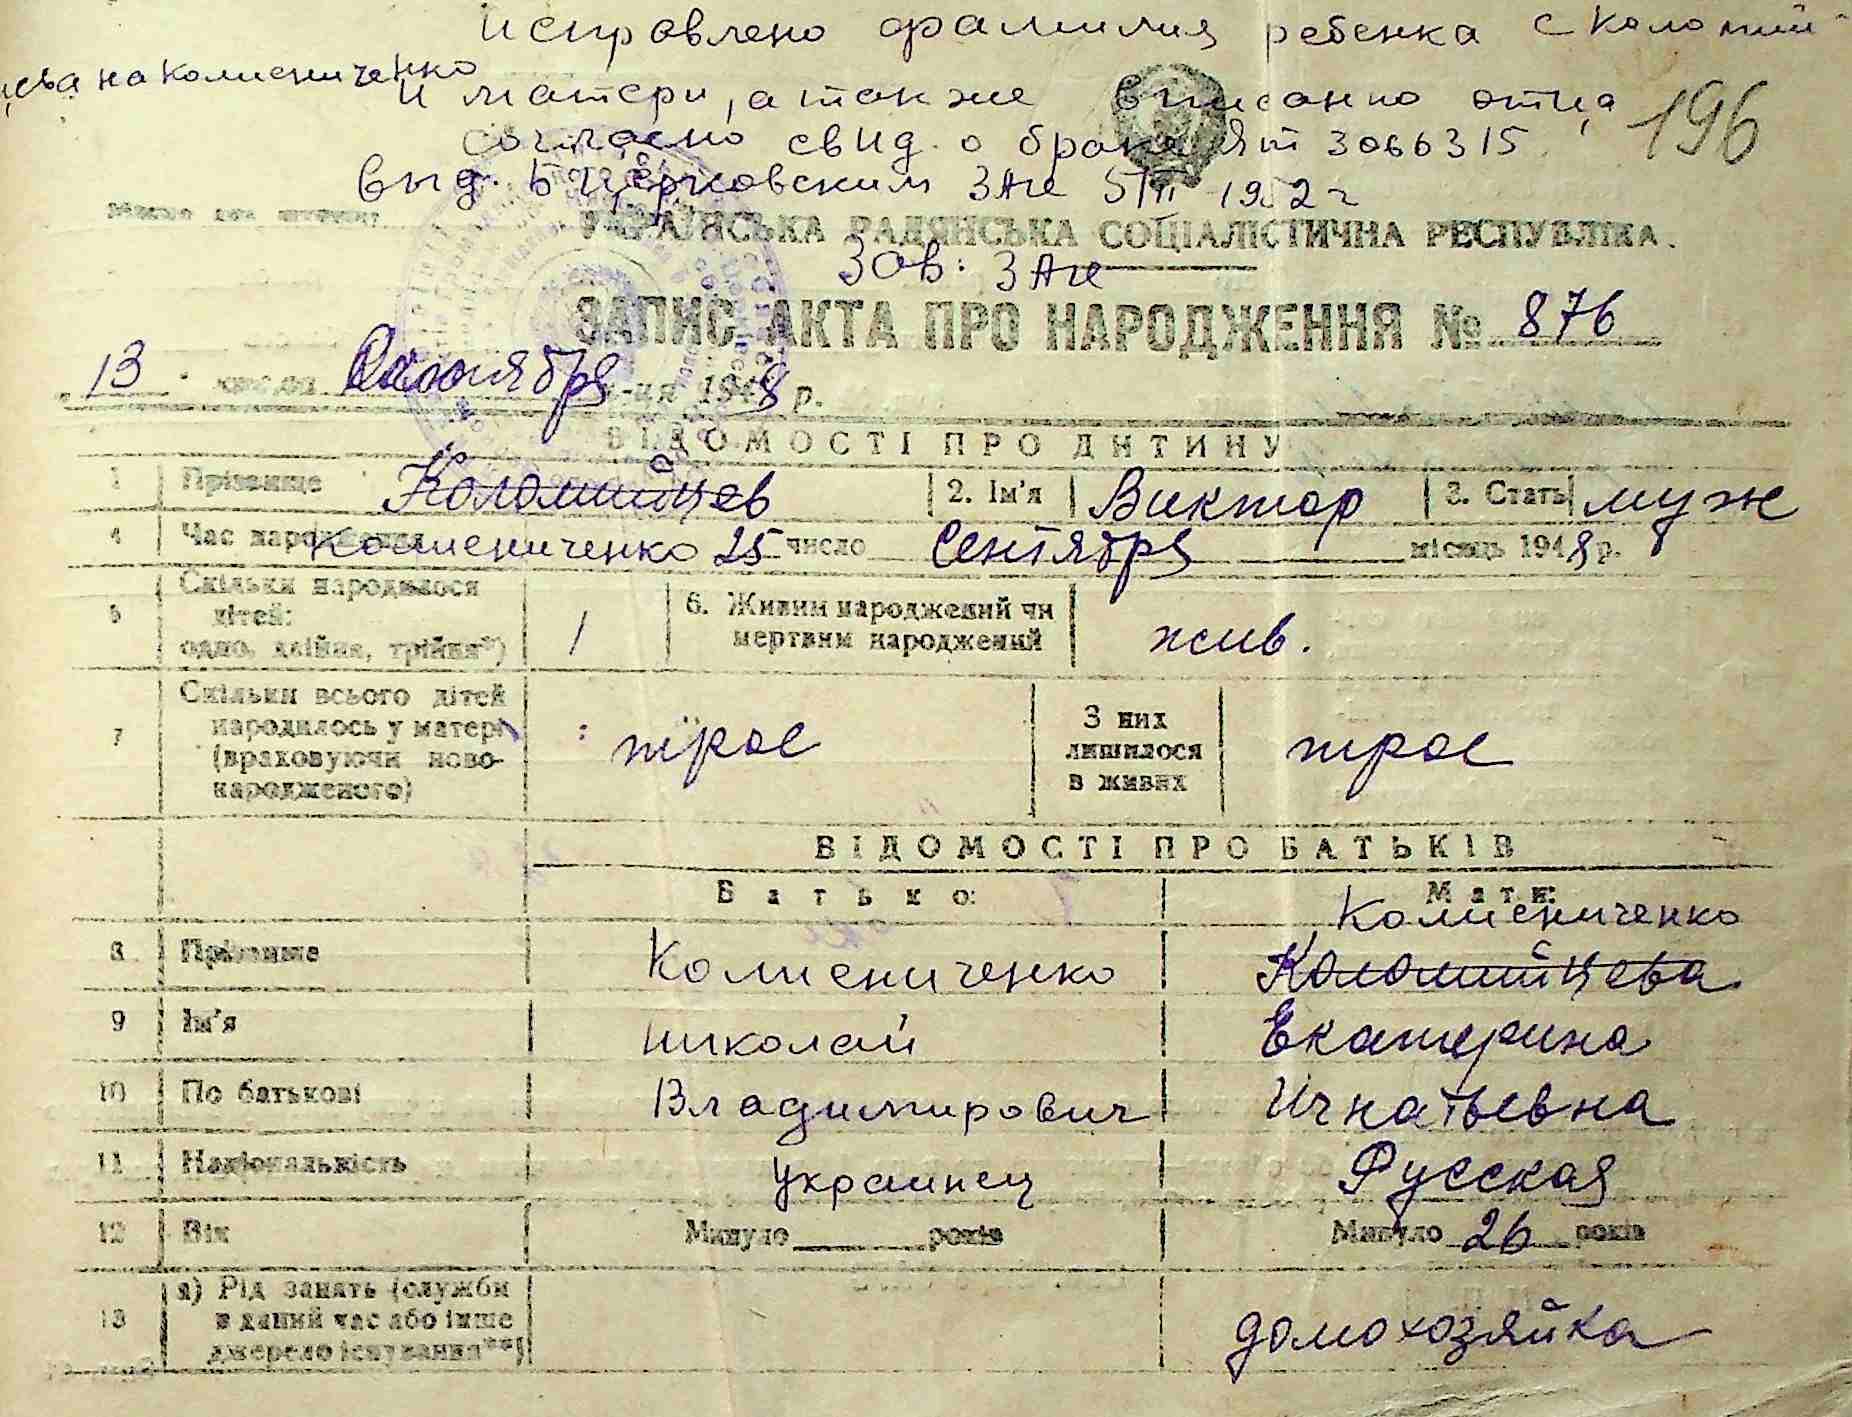 исправлено фамилия ребенка с Коломий-
цева на Колисниченко
и матери, а также вписанно отца
196
согласно свид. о браке ЯТ 3066315
выд. Б Церковским ЗАГС 5/III 1952 г
УКРАЇНСЬКА РАДЯНСЬКА СОЦІАЛІСТИЧНА РЕСПУБЛІКА.
Зав: ЗАГС
ЗАПИС АКТА ПРО НАРОДЖЕННЯ № 876
13 числа м-ця 1948 р.
ВІДОМОСТІ ПРО ДИТИНУ
1 Прізвище Коломийцев 2. Ім'я Виктор 3. Стать муж
4 Час народження Колисниченко 25 число Сентября місяць 1948 р.
5 Скільки народилося
дітей:
одно, двійня, трійня*) 1
6. Живим народжений чи
мертвим народжений жив.
7 Скільки всього дітей
народилось у матері
(враховуючи ново-
народженого) трое
З них
лишилося
в живих трое
ВІДОМОСТІ ПРО БАТЬКІВ
Батько: Мати:
Колисниченко
8 Прізвище Колисниченко Коломийцева
9 Ім'я Николай Екатерина
10 По батькові Владимирович Игнатьевна
11 Національність Украинец Русская
12 Вік Минуло років Минуло 26 років
13 а) Рід занять (служби
в даний час або інше
джерело існування**)
домохозяйка